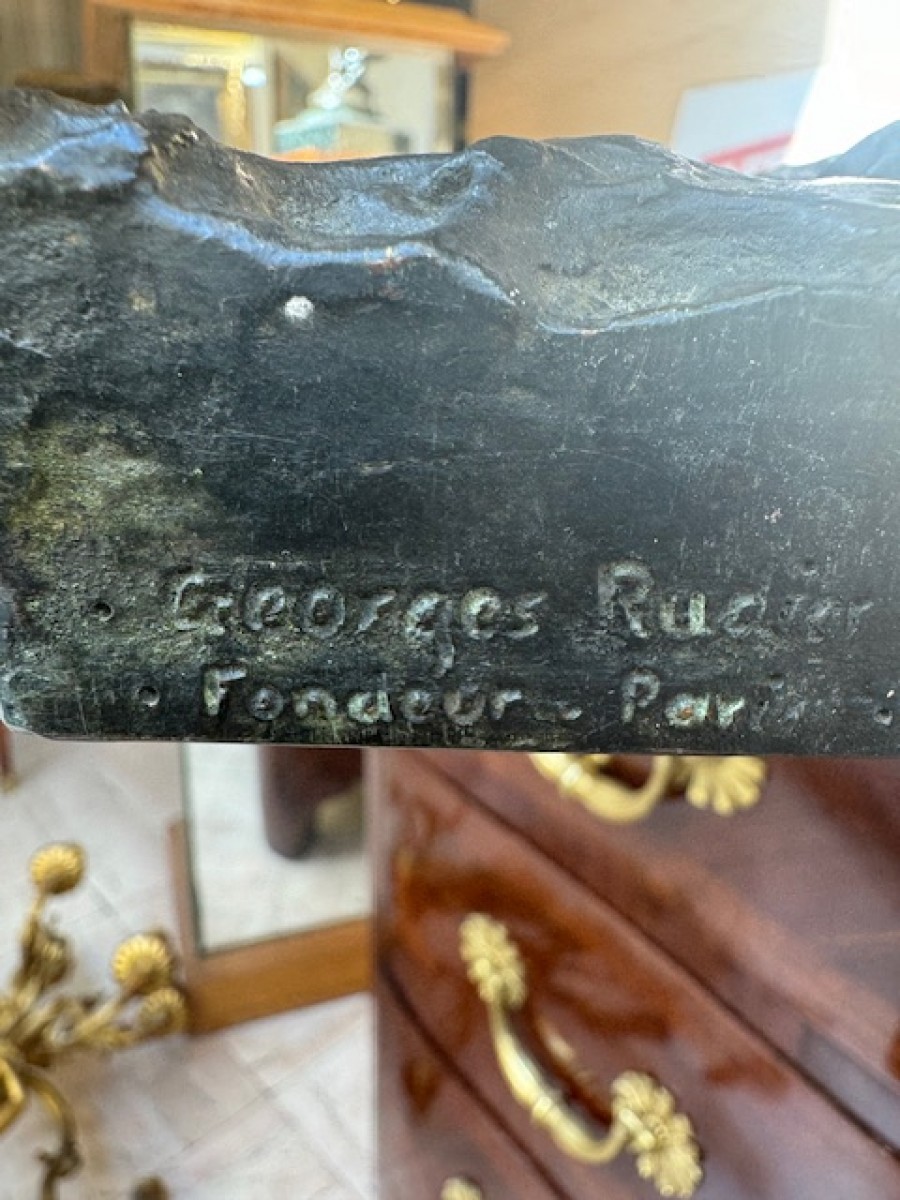 . Georges Rudier
. Fondeur. Paris.